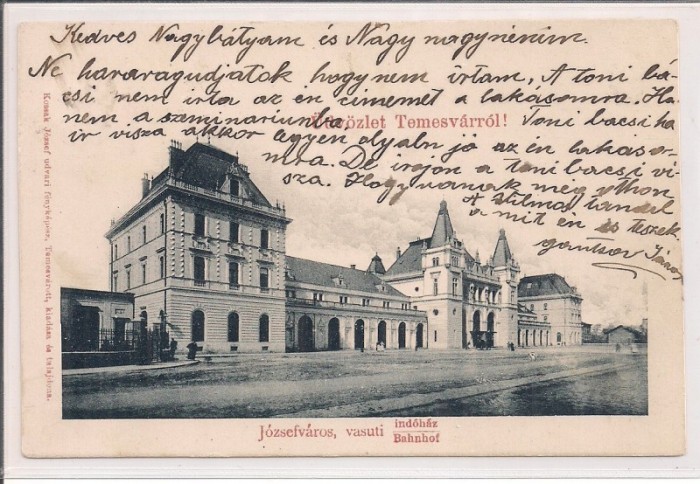 Kedves Nagybátyam és Nagy nagynénim.
Ne hararagudjatok hogy nem írtam, A toni bá-
csi nem irta az én címemet a lakásomra. Ha
nem a szminariumba. Toni bacsi ha
ir visza akkor legyen olyabn jó az én lakaso-
mra. De irojon a toni bacsi vi-
sza. Hogy vanak még othon
A Vilma tanul
a mit én is teszek
Üdvözlet Temesvárról!
Kossak József udvari fényképész, Temesvárott, kiadása és tulajdona.
Józsefváros, vasuti indóház
Bahnhof